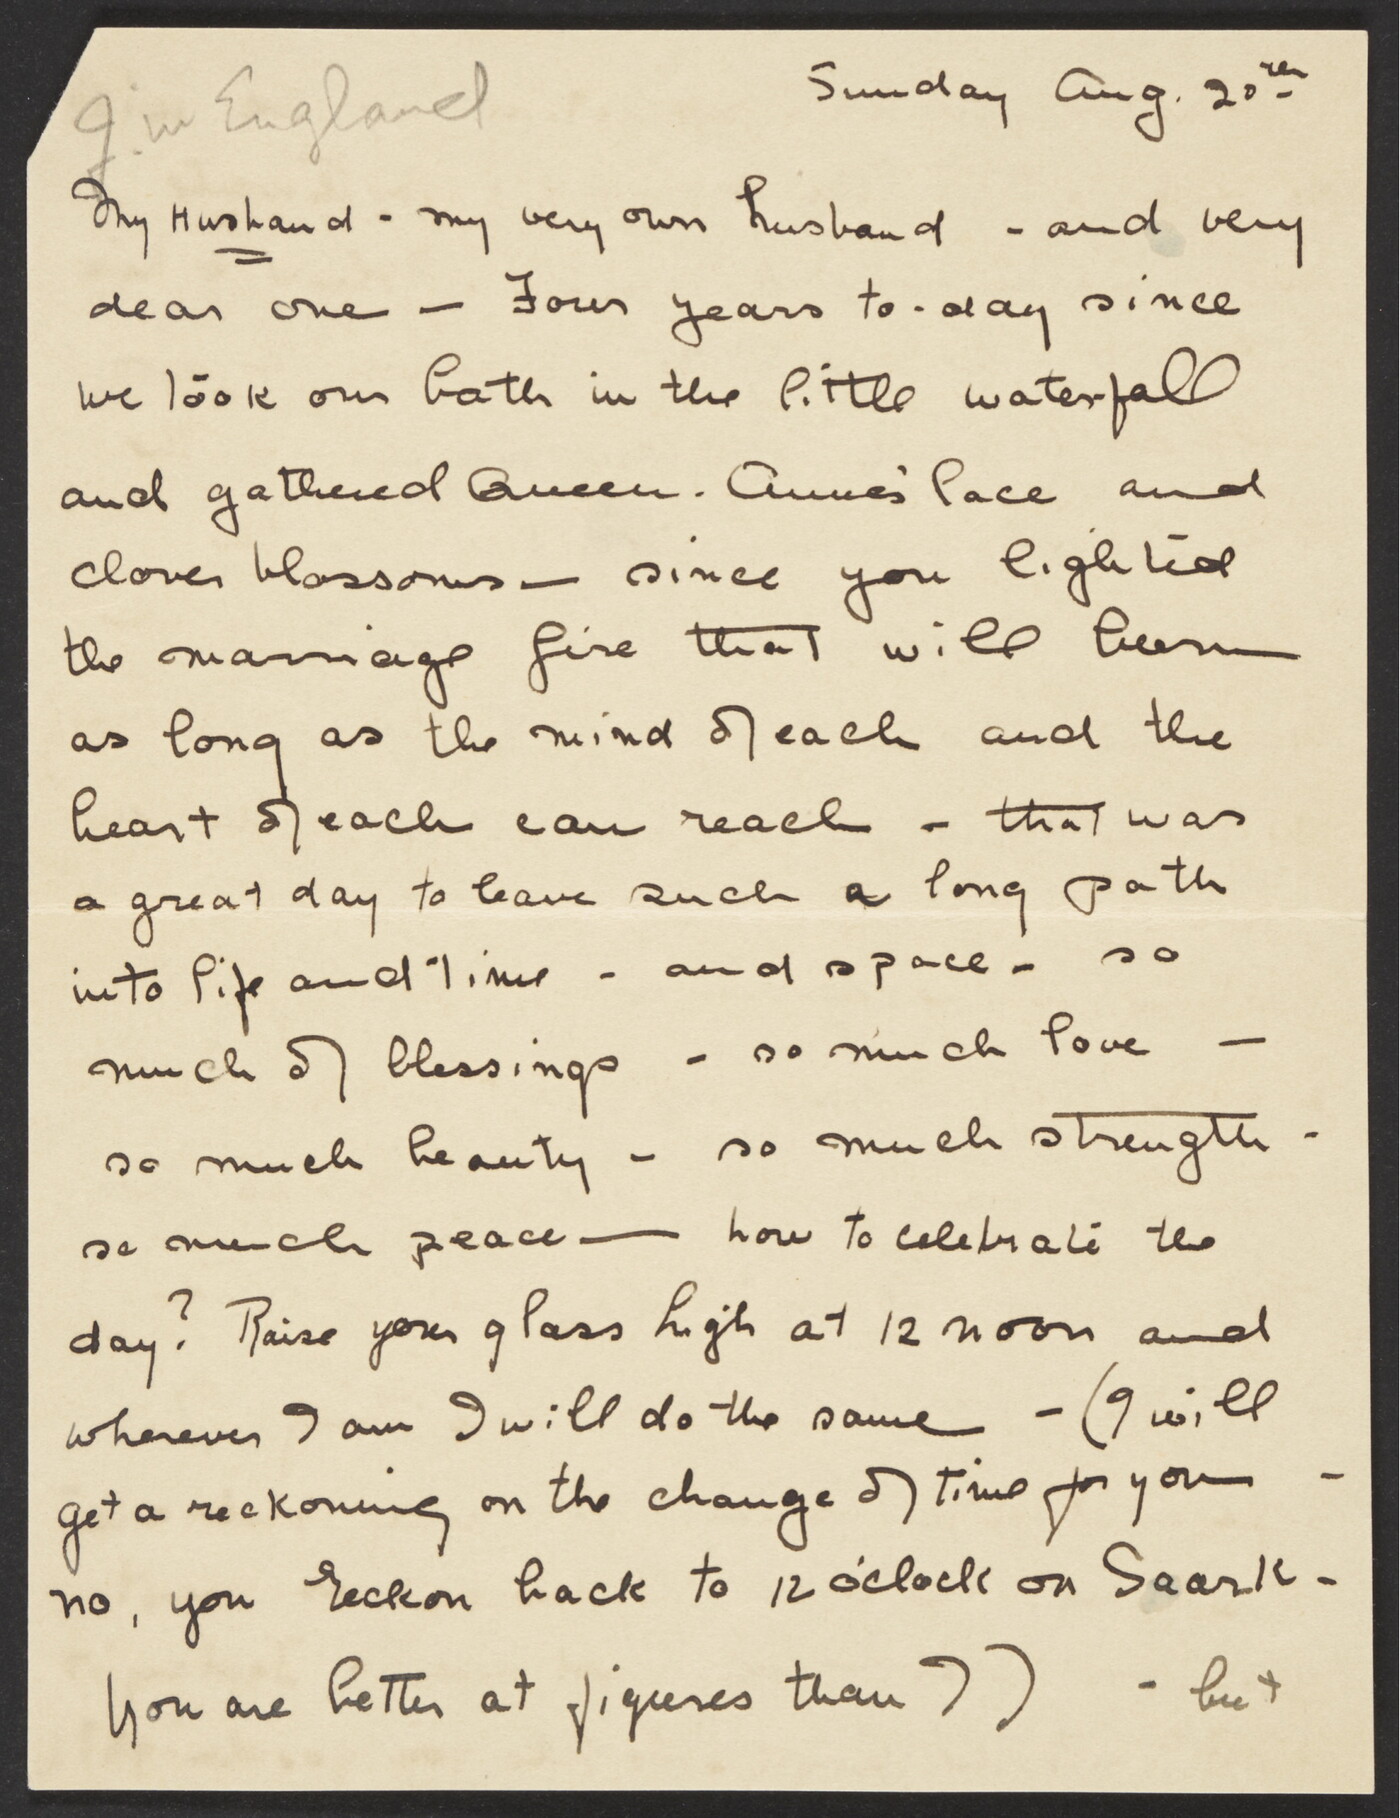 J. in England
Sunday Aug. 20th
My Husband - my very own husband - and very
dear one - Four years to-day since
we took our bath in the little waterfall
and gathered Queen-Anne's lace and
clover blossoms - since you lighted
the marriage fire that will burn
as long as the mind of each and the
heart of each can reach - that was
a great day to leave such a long path
into life and time - and space - so
much of blessings - so much love -
so much beauty - so much strength -
so much peace - how to celebrate the
day? Raise your glass high at 12 noon and
wherever I am I will do the same - (I will
get a reckoning on the change of time for you -
no, you reckon back to 12 o'clock on Saark -
you are better at figures than I) - but